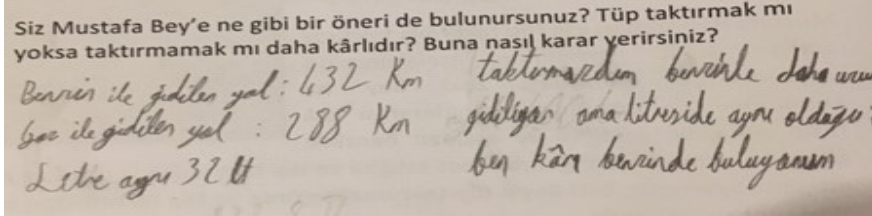 Siz Mustafa Bey'e ne gibi bir öneri de bulunursunuz? Tüp taktırmak mı
yoksa taktırmamak mı daha kârlıdır? Buna nasıl karar verirsiniz?
Benzin ile gidilen yol : 432 Km
gaz ile gidilen yol : 288 Km
Litre aynı 32 lt
taktırmazdım benzinle daha uzun
gidiliyor ama litreside aynı olduğu
ben kârı benzinde buluyorum